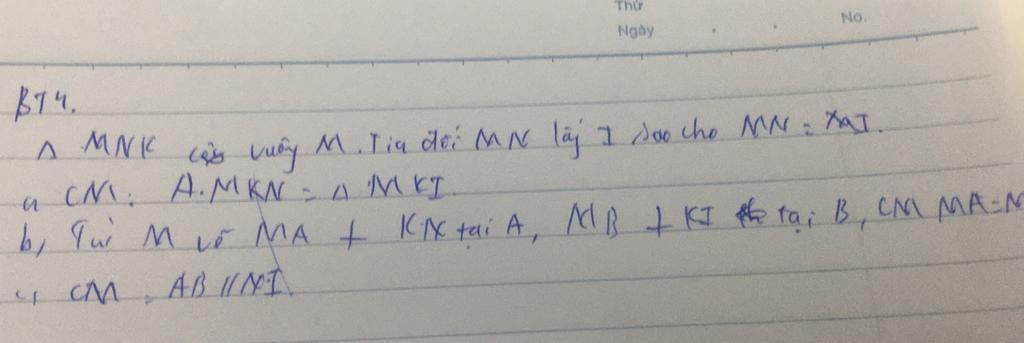 Thứ
Ngày
No.
BT4.
Δ MNK vuông M. Tia đối MN lấy I sao cho MN = MI.
a CM: Δ.MKN = Δ MKI
b, Từ M vẽ MA ⊥ KN tại A, MB ⊥ KI tại B, CM MA=M
c, CM : AB // NI.